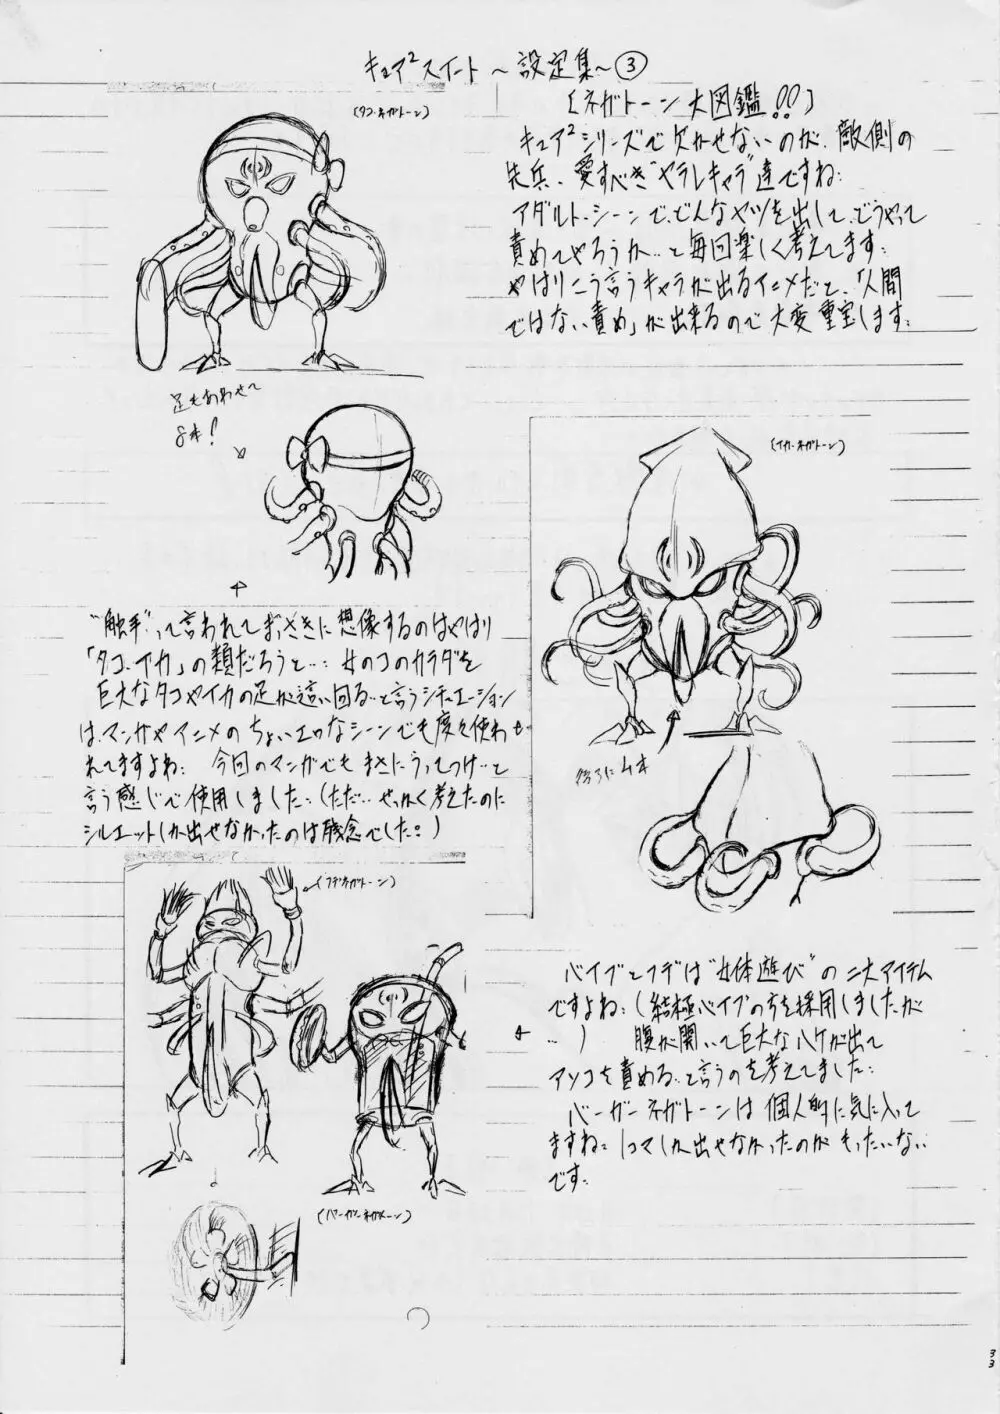 キュア²スイート～設定集～③
(ネガトーン大図鑑!!)
(タコ・ネガトーン)
キュア²シリーズで欠かせないのが、敵側の
先兵、愛すべき"ヤラレキャラ"達ですね。
アダルト・シーンで、どんなヤツを出して、どうやって
責めてやろうか…と毎回楽しく考えてます。
やはりこう言うキャラが出るアニメだと、「人間
ではない責め」が出来るので大変重宝します。
足もあわせて
8本!
(イカ・ネガトーン)
"触手"って言われてまっさきに想像するのはやはり
「タコ、イカ」の類だろうと… 女のコのカラダを
巨大なタコやイカの足が這い回る…と言うシチュエーション
は、マンガやアニメのちょいエロなシーンでも度々使わ
れてますよね。今回のマンガでもまさにうってつけ…と
言う感じで使用しました。(ただ…せっかく考えたのに
シルエットしか出せなかったのは残念でした。)
後ろに4本
(フデネガトーン)
バイブとフデは"女体遊び"の二大アイテム
ですよね。(結極バイブの方を採用しましたが
…) 腹が開いて巨大なハケが出て
アソコを責める…と言うのを考えてました。
バーガーネガトーンは個人的に気に入って
ますね。1コマしか出せなかったのがもったいない
です。
(バーガーネガトーン)
33